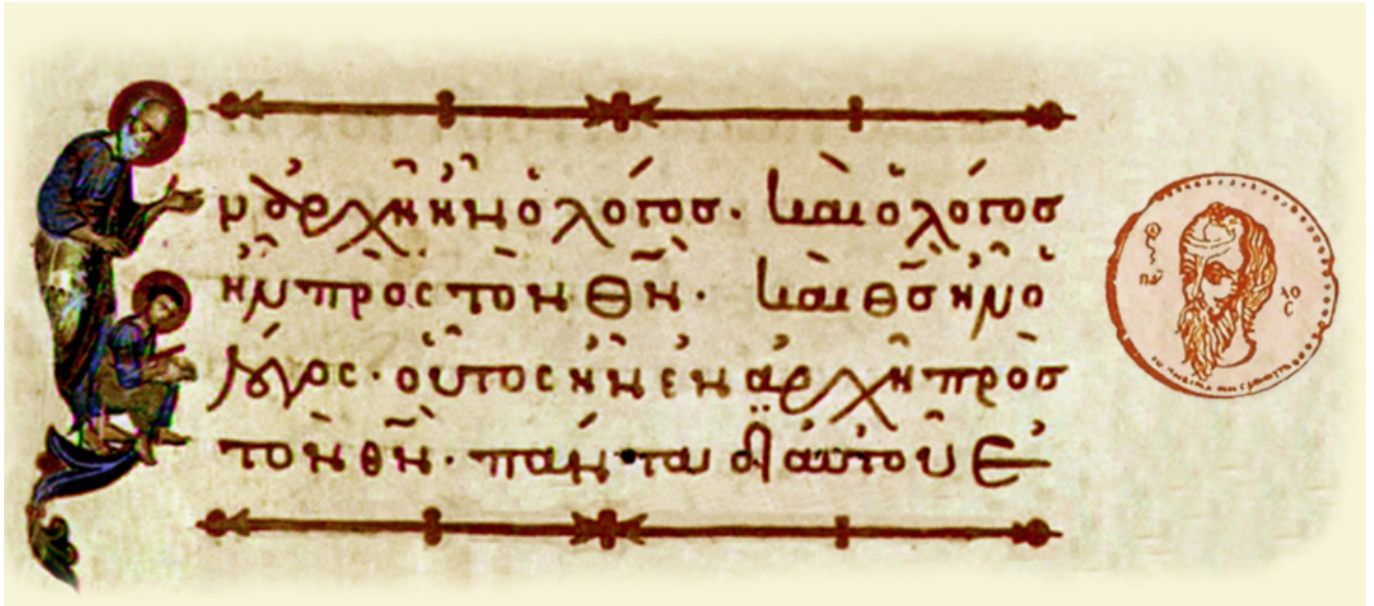 ν ἀρχῆ ἦν ὁ λόγοσ· καὶ ὁ λόγοσ
ἦν πρὸς τὸν θ̅ν̅· καὶ θ̅σ̅ ἦν ὁ
λόγος· οὗτος ἦν ἐν ἀρχῆ πρὸσ
τὸν θ̅ν̅· πάντα δι αὐτοῦ ἐ
παῦ
λο
ς